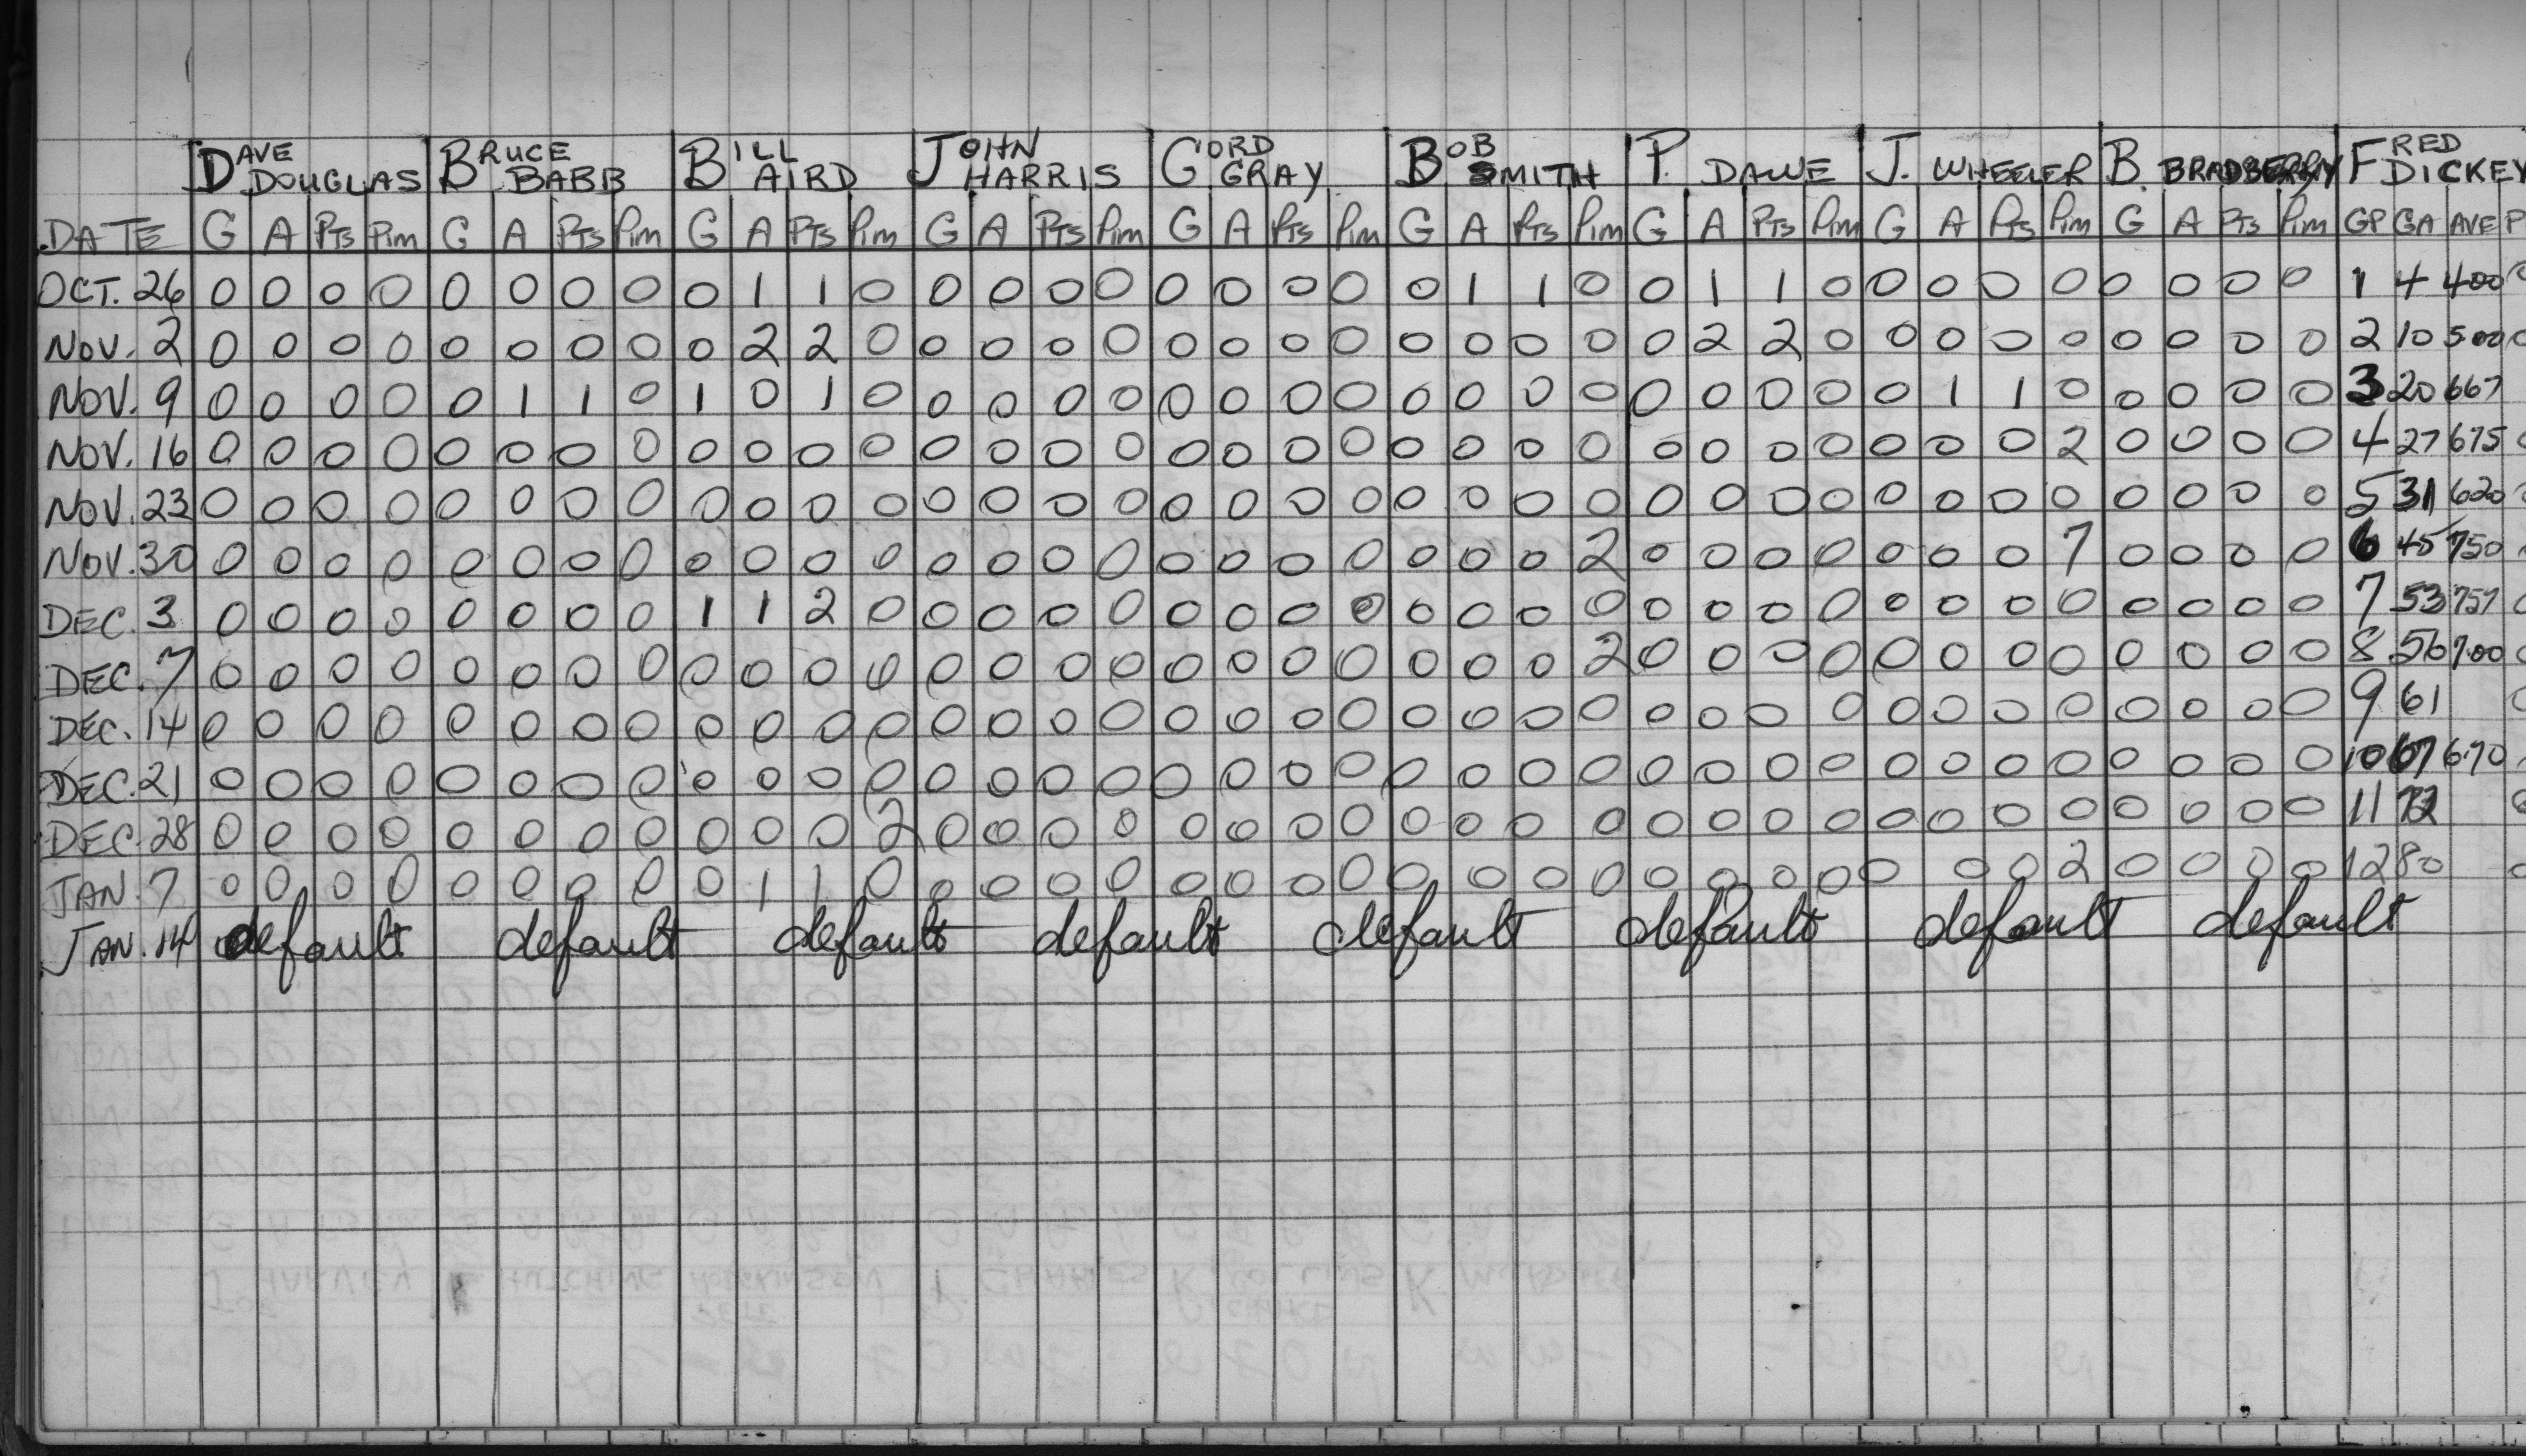 DAVE DOUGLAS BRUCE BABB BILL AIRD JOHN HARRIS GORD GRAY BOB SMITH P. DAWE J. WHEELER B. BRADBERRY FRED DICKEY
DATE G A PTs Pim G A PTs Pim G A PTs Pim G A PTs Pim G A PTs Pim G A PTs Pim G A PTs Pim G A PTs Pim G A PTs Pim GP GA AVE P
OCT. 26 0 0 0 0 0 0 0 0 0 1 1 0 0 0 0 0 0 0 0 0 0 1 1 0 0 1 1 0 0 0 0 0 0 0 0 0 1 4 400
NOV. 2 0 0 0 0 0 0 0 0 0 2 2 0 0 0 0 0 0 0 0 0 0 0 0 0 0 2 2 0 0 0 0 0 0 0 0 0 2 10 500
NOV. 9 0 0 0 0 0 1 1 0 1 0 1 0 0 0 0 0 0 0 0 0 0 0 0 0 0 0 0 0 0 1 1 0 0 0 0 0 3 20 667
NOV. 16 0 0 0 0 0 0 0 0 0 0 0 0 0 0 0 0 0 0 0 0 0 0 0 0 0 0 0 0 0 0 0 2 0 0 0 0 4 27 675
NOV. 23 0 0 0 0 0 0 0 0 0 0 0 0 0 0 0 0 0 0 0 0 0 0 0 0 0 0 0 0 0 0 0 0 0 0 0 0 5 31 620
NOV. 30 0 0 0 0 0 0 0 0 0 0 0 0 0 0 0 0 0 0 0 0 0 0 0 2 0 0 0 0 0 0 0 7 0 0 0 0 6 45 750
DEC. 3 0 0 0 0 0 0 0 0 1 1 2 0 0 0 0 0 0 0 0 0 0 0 0 0 0 0 0 0 0 0 0 0 0 0 0 0 7 53 757
DEC. 7 0 0 0 0 0 0 0 0 0 0 0 0 0 0 0 0 0 0 0 0 0 0 0 2 0 0 0 0 0 0 0 0 0 0 0 0 8 56 700
DEC. 14 0 0 0 0 0 0 0 0 0 0 0 0 0 0 0 0 0 0 0 0 0 0 0 0 0 0 0 0 0 0 0 0 0 0 0 0 9 61
DEC. 21 0 0 0 0 0 0 0 0 0 0 0 0 0 0 0 0 0 0 0 0 0 0 0 0 0 0 0 0 0 0 0 0 0 0 0 0 10 67 6.70
DEC. 28 0 0 0 0 0 0 0 0 0 0 0 2 0 0 0 0 0 0 0 0 0 0 0 0 0 0 0 0 0 0 0 0 0 0 0 0 11 72
JAN. 7 0 0 0 0 0 0 0 0 0 1 1 0 0 0 0 0 0 0 0 0 0 0 0 0 0 0 0 0 0 0 0 2 0 0 0 0 12 80
JAN. 14 default default default default default default default default